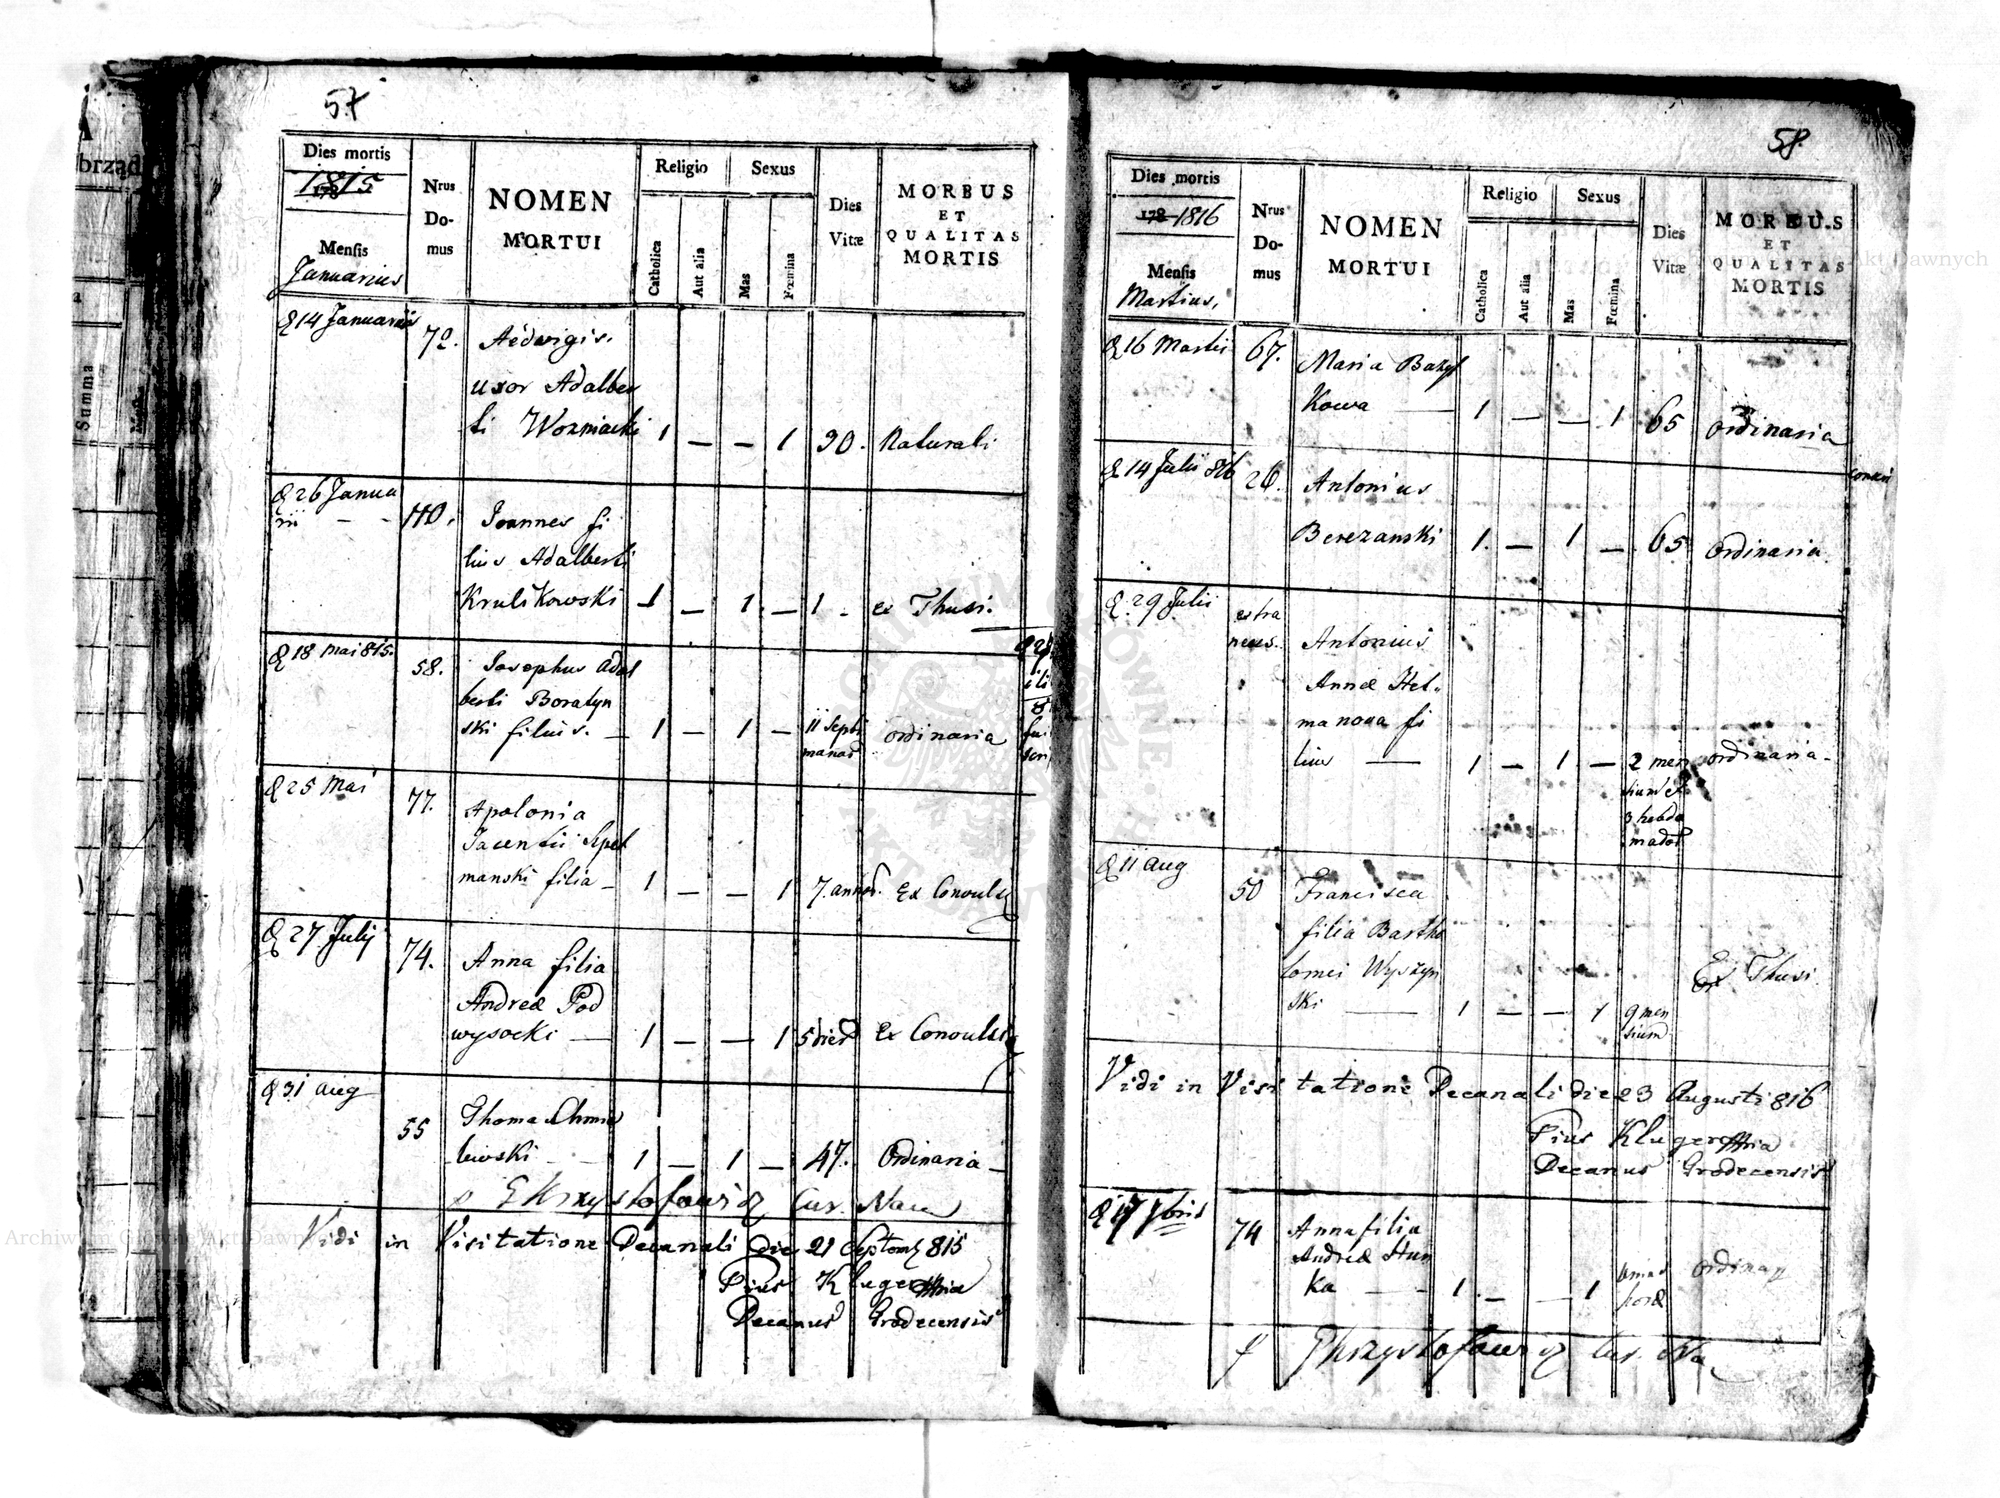 57
Dies mortis
1815
Mensis
Januarius
Nrus
Do-
mus
NOMEN
MORTUI
Religio
Catholica
Aut alia
Sexus
Mas
Fœmina
Dies
Vitæ
MORBUS
ET
QUALITAS
MORTIS
14 Januarii
70.
Hedwigis,
uxor Adalber
ti Wozniacki 1 — — 1 90. Naturali
26 Janua
rii — -
110.
Joannes fi
lius Adalberti
Krulikowski 1 — 1. — 1 - ex Thusi.
18 Mai 815.
58.
Josephus Adal
berti Boratyn
ski filius. — 1 — 1 — 11 Septi
manar
ordinaria
25 Mai
77.
Apolonia
Jacentii Sepel
manski filia — 1 — — 1 7. annor. Ex Convuls
27 Julij
74.
Anna filia
Andreæ Pod
wysocki — 1 — — 1 5 dier Ex Convulsi
31 Aug
55
Thoma Chmie
lewski - — 1 — 1 — 47. Ordinaria —
Krzysztofowicz Cur.
Vidi in Visitatione Decanali die 21 Septemb 815
Pius Kluger
Decanus Grodecensis
58.
Dies mortis
178 1816
Mensis
Martius,
Nrus
Do-
mus
NOMEN
MORTUI
Religio
Catholica
Aut alia
Sexus
Mas
Fœmina
Dies
Vitæ
MORBUS
ET
QUALITAS
MORTIS
16 Martii
67.
Maria Bazyl
kowa — 1 — — 1 65 ordinaria
14 Julii 816
26.
Antonius
Berezanski 1. — 1 — 65 ordinaria.
29 Julii
extra
neus.
Antonius
Annæ Het-
manowa fi
lius — 1 — 1 — 2 men
sium et
3 hebdo
mador
ordinaria -
11 Aug
50
Francisca
filia Bartho
lomei Wyszyn
ski — 1 — — 1 9 men
sium
Ex Thusi.
Vidi in Visitatione Decanali die 23 Augusti 816
Pius Kluger
Decanus Grodecensis
17 7bris
74
Anna filia
Andreæ Hun
ka — 1. — — 1 unius
horæ
ordinar
Krzysztofowicz Cur.
brząd
Summa
Archiwum Główne Akt Dawnych